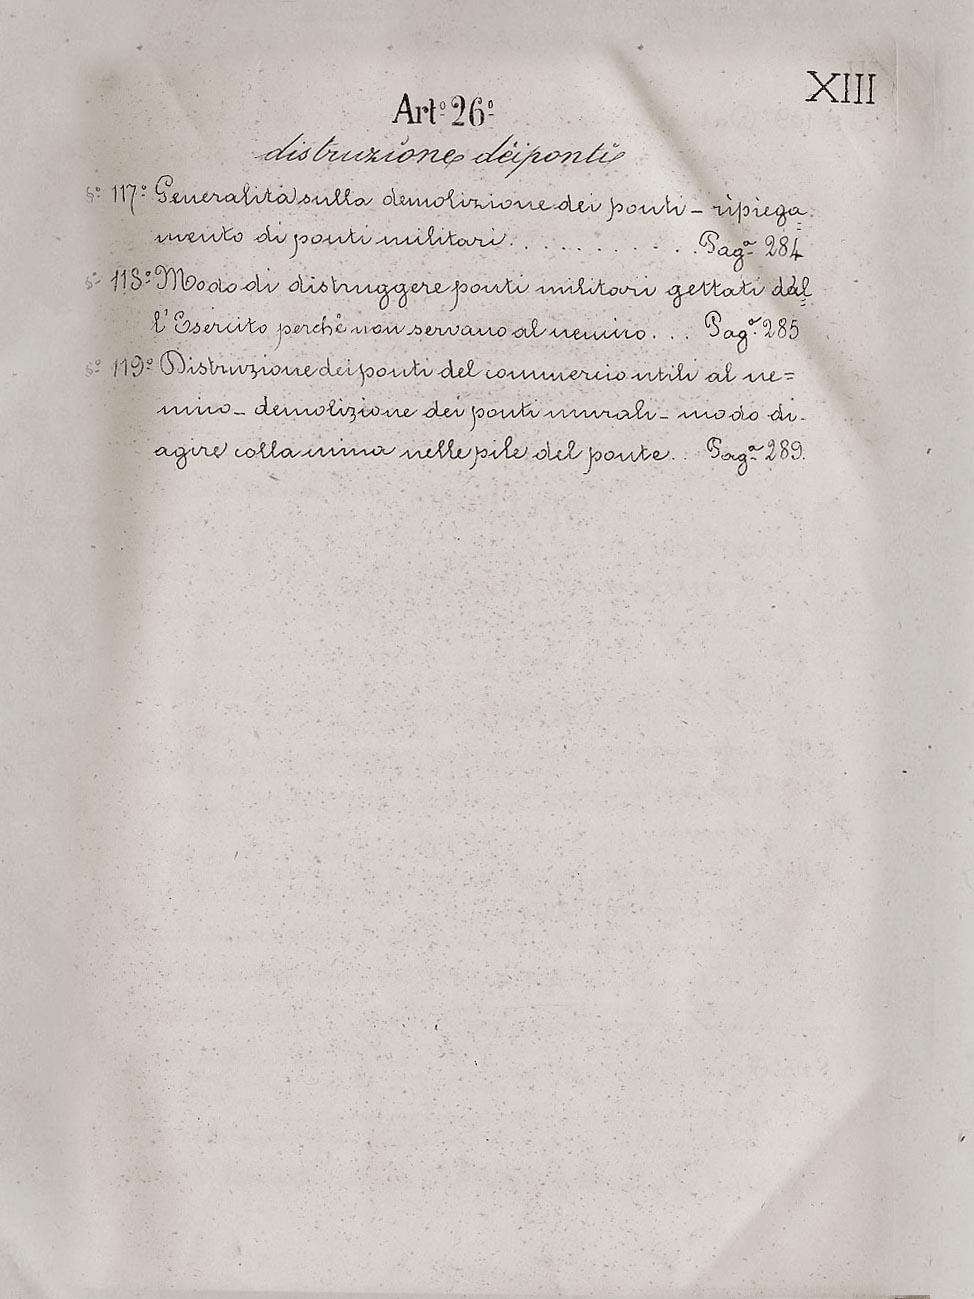 XIII
Art.º 26º
distruzione dei ponti
§º 117º Generalità sulla demolizione dei ponti – ripiega=
mento di ponti militari. . . . . . . . . . . Pag.ª 284
§º 118º Modo di distruggere ponti militari gettati dal=
l'Esercito perchè non servano al nemico. . . Pag.ª 285
§º 119º Distruzione dei ponti del commercio utili al ne=
mico – demolizione dei ponti murali – modo di
agire colla mina nelle pile del ponte. . Pag.ª 289.